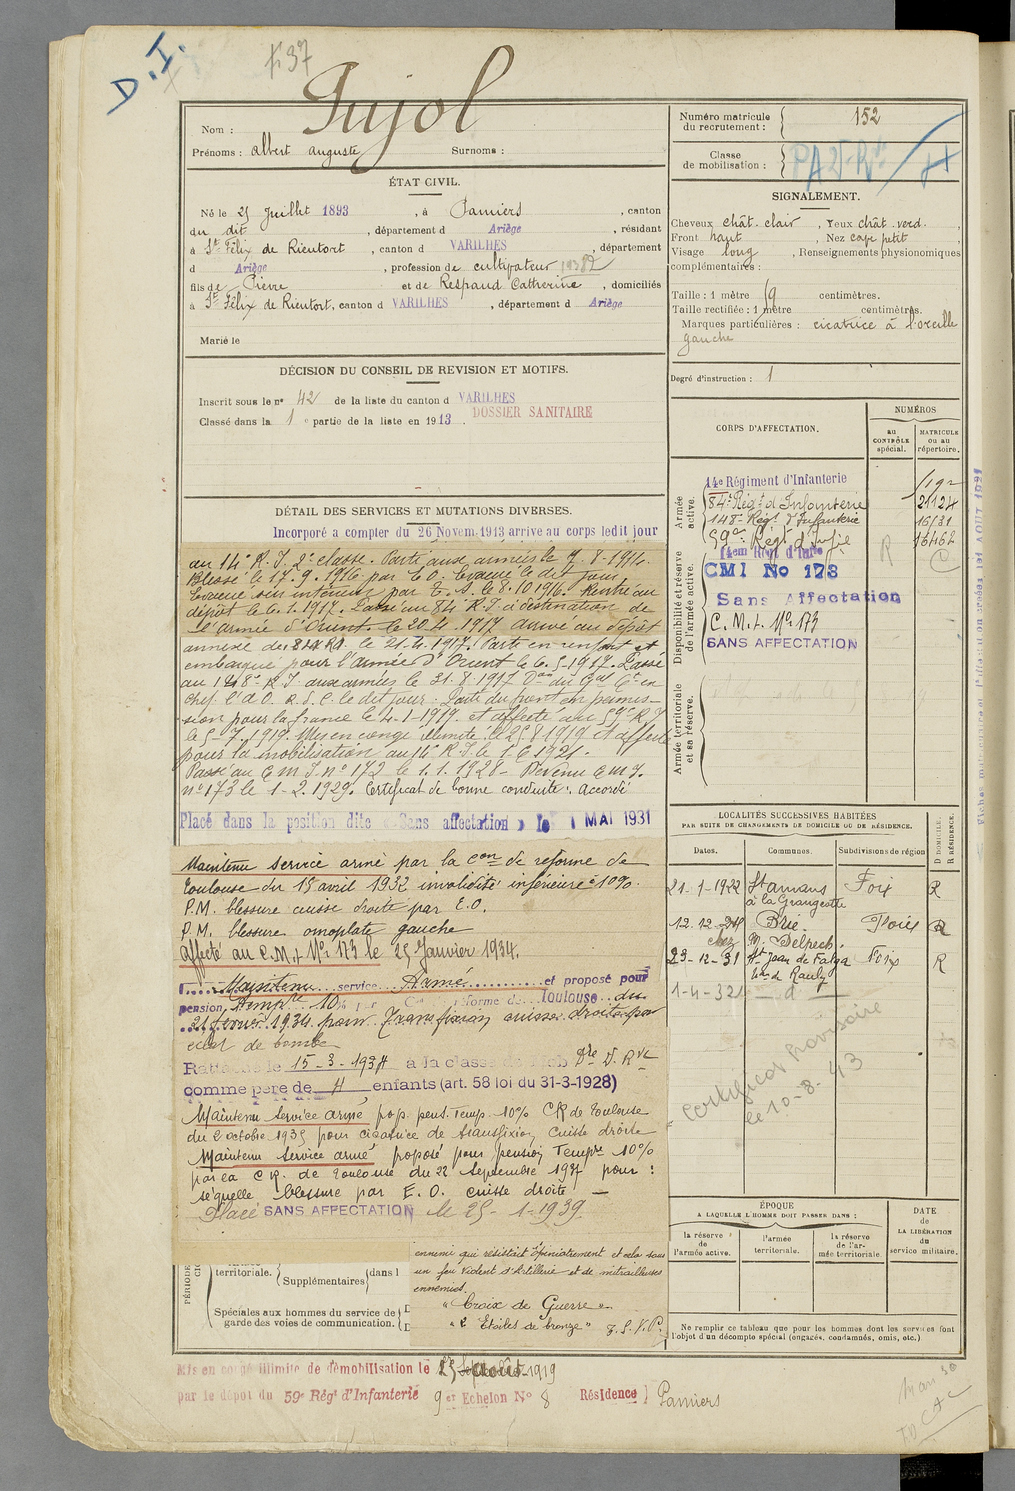 D.I.
p 37
Nom : Pujol
Prénoms : Albert Auguste Surnoms :
ÉTAT CIVIL.
Né le 25 Juillet 1893, à Pamiers, canton
du dit, département d Ariège, résidant
à St Félix de Rieutort, canton d VARILHES, département
d Ariège, profession de cultivateur
fils de Pierre et de Respaud Catherine, domiciliés
à St Félix de Rieutort, canton d VARILHES, département d Ariège
Marié le
DÉCISION DU CONSEIL DE REVISION ET MOTIFS.
Inscrit sous le n° 42 de la liste du canton d VARILHES
Classé dans la 1e partie de la liste en 1913.
DOSSIER SANITAIRE
DÉTAIL DES SERVICES ET MUTATIONS DIVERSES.
Incorporé à compter du 26 Novem. 1913 arrivé au corps ledit jour
au 14e R.I. 2e classe. Parti aux armées le 7.8.1914.
Blessé le 17.9.1916 par E.O. Evacué le dit jour
Evacué sur intérieur par T.S. le 8.10.1916. Rentré au
dépôt le 6.1.1917. Passé au 84e R.I. à destination de
l'armée d'Orient le 20.4.1917 arrivé au dépôt
annexe du 84e R.I. le 21.4.1917. Parti en renfort et
embarqué pour l'armée d'Orient le 6.5.1917. Passé
au 148e R.I. aux armées le 31.8.1917 Don du Gal Ct en
chef l'A.O. le dit jour. Parti du front en permis-
sion pour la France le 4-1-1919 et affecté au 59e R.I.
le 5-7.1919. Mis en congé illimité le 25 8 1919 et affecté
pour la mobilisation au 14e R.I. le 1.6.1921.
Passé au C M I. n° 172 le 1.1.1928 - Devenu C M I.
n° 173 le 1-2.1929. Certificat de bonne conduite : Accordé
Placé dans la position dite « Sans affectation » le 1 MAI 1931
Maintenu service armé par la Con de réforme de
Toulouse du 15 avril 1932 invalidité inférieure à 10%.
P.M. blessure cuisse droite par E.O.
P.M. blessure omoplate gauche
Affecté au C.M.I. N° 173 le 25 Janvier 1934.
Maintenu service Armé et proposé pour
pension Tempre 10% par Con réforme de Toulouse du
21 février 1934 pour Transfixion cuisse droite par
éclat de bombe
Rattaché le 15-3-1934 à la classe de Mob Dre D. Rve
comme père de 4 enfants (art. 58 loi du 31-3-1928)
Maintenu Service armé prop. pens. Temp. 10% CR de Toulouse
du 2 octobre 1935 pour cicatrice de transfixion cuisse droite
Maintenu Service armé proposé pour pension Tempre 10%
par la C R. de Toulouse du 22 Septembre 1937 pour :
séquelle blessure par E.O. cuisse droite —
Placé SANS AFFECTATION le 25-1-1939
ennemi qui résistait opiniâtrement et cela sous
un feu violent d'Artillerie et de mitrailleuses
ennemies.
"Croix de Guerre".
"2 Etoiles de bronze" T.S.V.P.
territoriale.
Supplémentaires dans l
Spéciales aux hommes du service de
garde des voies de communication.
Mis en congé illimité de démobilisation le 25 août 1919
par le dépôt du 59e Régt d'Infanterie 9er Echelon N° 8 Résidence Pamiers
Numéro matricule
du recrutement : 152
Classe
de mobilisation :
SIGNALEMENT.
Cheveux chât. clair, Yeux chât. verd.,
Front haut, Nez cave petit,
Visage long, Renseignements physionomiques
complémentaires :
Taille : 1 mètre 59 centimètres.
Taille rectifiée : 1 mètre centimètres.
Marques particulières : cicatrice à l'oreille
gauche
Degré d'instruction : 1
CORPS D'AFFECTATION.
NUMÉROS
au
CONTRÔLE
spécial.
MATRICULE
ou au
répertoire.
Armée
active.
14e Régiment d'Infanterie
84e Régt d'Infanterie 21124
148e Régt d'Infanterie 16131
59e Régt d'Infie 16462
Disponibilité et réserve
de l'armée active.
14eme Regt d'Infie R C
CMI No 173
Sans Affectation
C.M.I. N° 173
SANS AFFECTATION
Armée territoriale
et sa réserve.
LOCALITÉS SUCCESSIVES HABITÉES
PAR SUITE DE CHANGEMENTS DE DOMICILE OU DE RÉSIDENCE.
Dates. Communes. Subdivisions de région
D DOMICILE.
R RÉSIDENCE.
21-1-1922 St Amans Foix R
à la Grangeotte
12.12.24 Brie. Foix R
chez M. Delpech.
29-12-31 St Jean de Falga Foix R
1-4-32 — d —
Certificat provisoire
le 10-8-43
ÉPOQUE
A LAQUELLE L'HOMME DOIT PASSER DANS :
la réserve
de
l'armée active.
l'armée
territoriale.
la réserve
de l'ar-
mée territoriale.
DATE
de
LA LIBÉRATION
du
service militaire.
Ne remplir ce tableau que pour les hommes dont les services font
l'objet d'un décompte spécial (engagés, condamnés, omis, etc.)